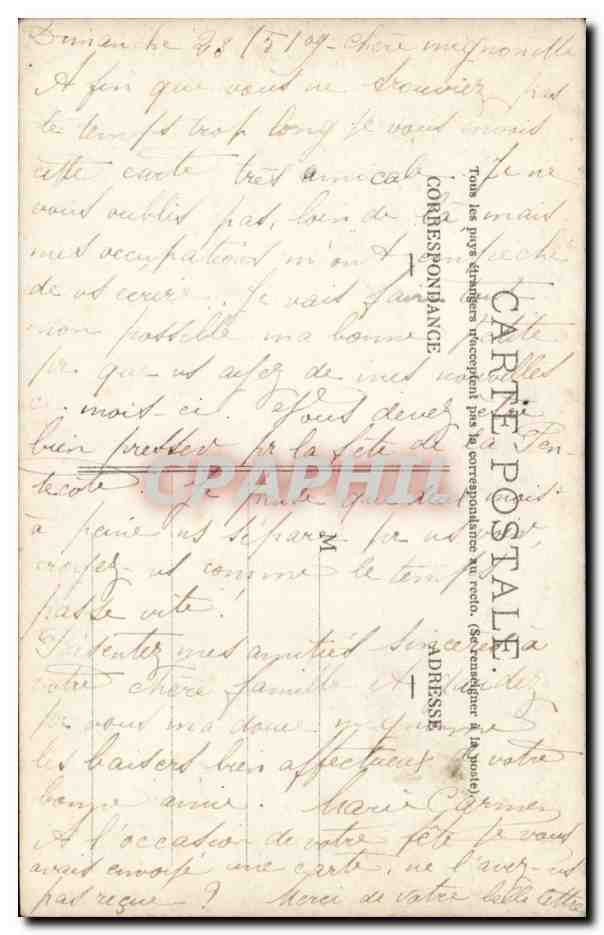 Dimanche 23/5/09 - chère mignonette
A fin que vous ne trouviez pas
le temps trop long je vous envois
cette carte très amicale. Je ne
vous oublis pas, loin de là, mais
mes occupations m'ont empeché
de vs ecrire. Je vais faire tout
mon possible ma bonne petite
pr que vs ayez de mes nouvelles
c. mois-ci. Vous devez être
bien pressée pr la fête de la Pen-
tecote. Je pense que deux mois
à peine ns séparent pr ns voir,
croyez-vs comme le temps
passe vite!
Présentez mes amitiés sincères à
votre chère famille et gardez
pr vous ma douce mignonne
les baisers bien affectueux de votre
bonne amie. Marie Carmen
A l'occasion de votre fête je vous
avais envoyé une carte, ne l'avez-vs
pas reçue? Merci de votre belle lettre
CARTE POSTALE.
Tous les pays étrangers n'acceptent pas la correspondance au recto. (Se renseigner à la poste).
CORRESPONDANCE
ADRESSE
M
CPAPHIL